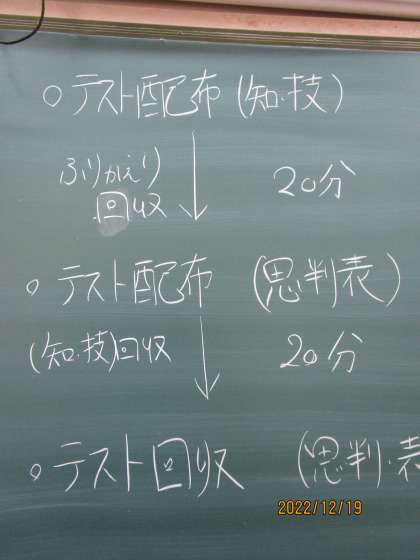 ○テスト配布(知・技)
ふりかえり
回収
20分
○テスト配布 (思判表)
(知・技)回収
20分
○テスト回収 (思判・表
2022/12/19